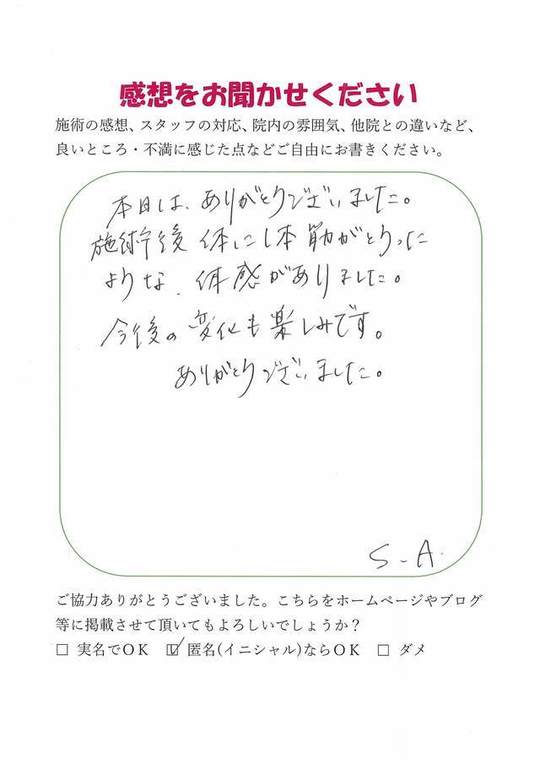 感想をお聞かせください
施術の感想、スタッフの対応、院内の雰囲気、他院との違いなど、
良いところ・不満に感じた点などご自由にお書きください。
本日は、ありがとうございました。
施術後 体に1本筋がとおった
ような、体感がありました。
今後の変化も楽しみです。
ありがとうございました。
S-A.
ご協力ありがとうございました。こちらをホームページやブログ
等に掲載させて頂いてもよろしいでしょうか？
□ 実名でOK ☑ 匿名(イニシャル)ならOK □ ダメ